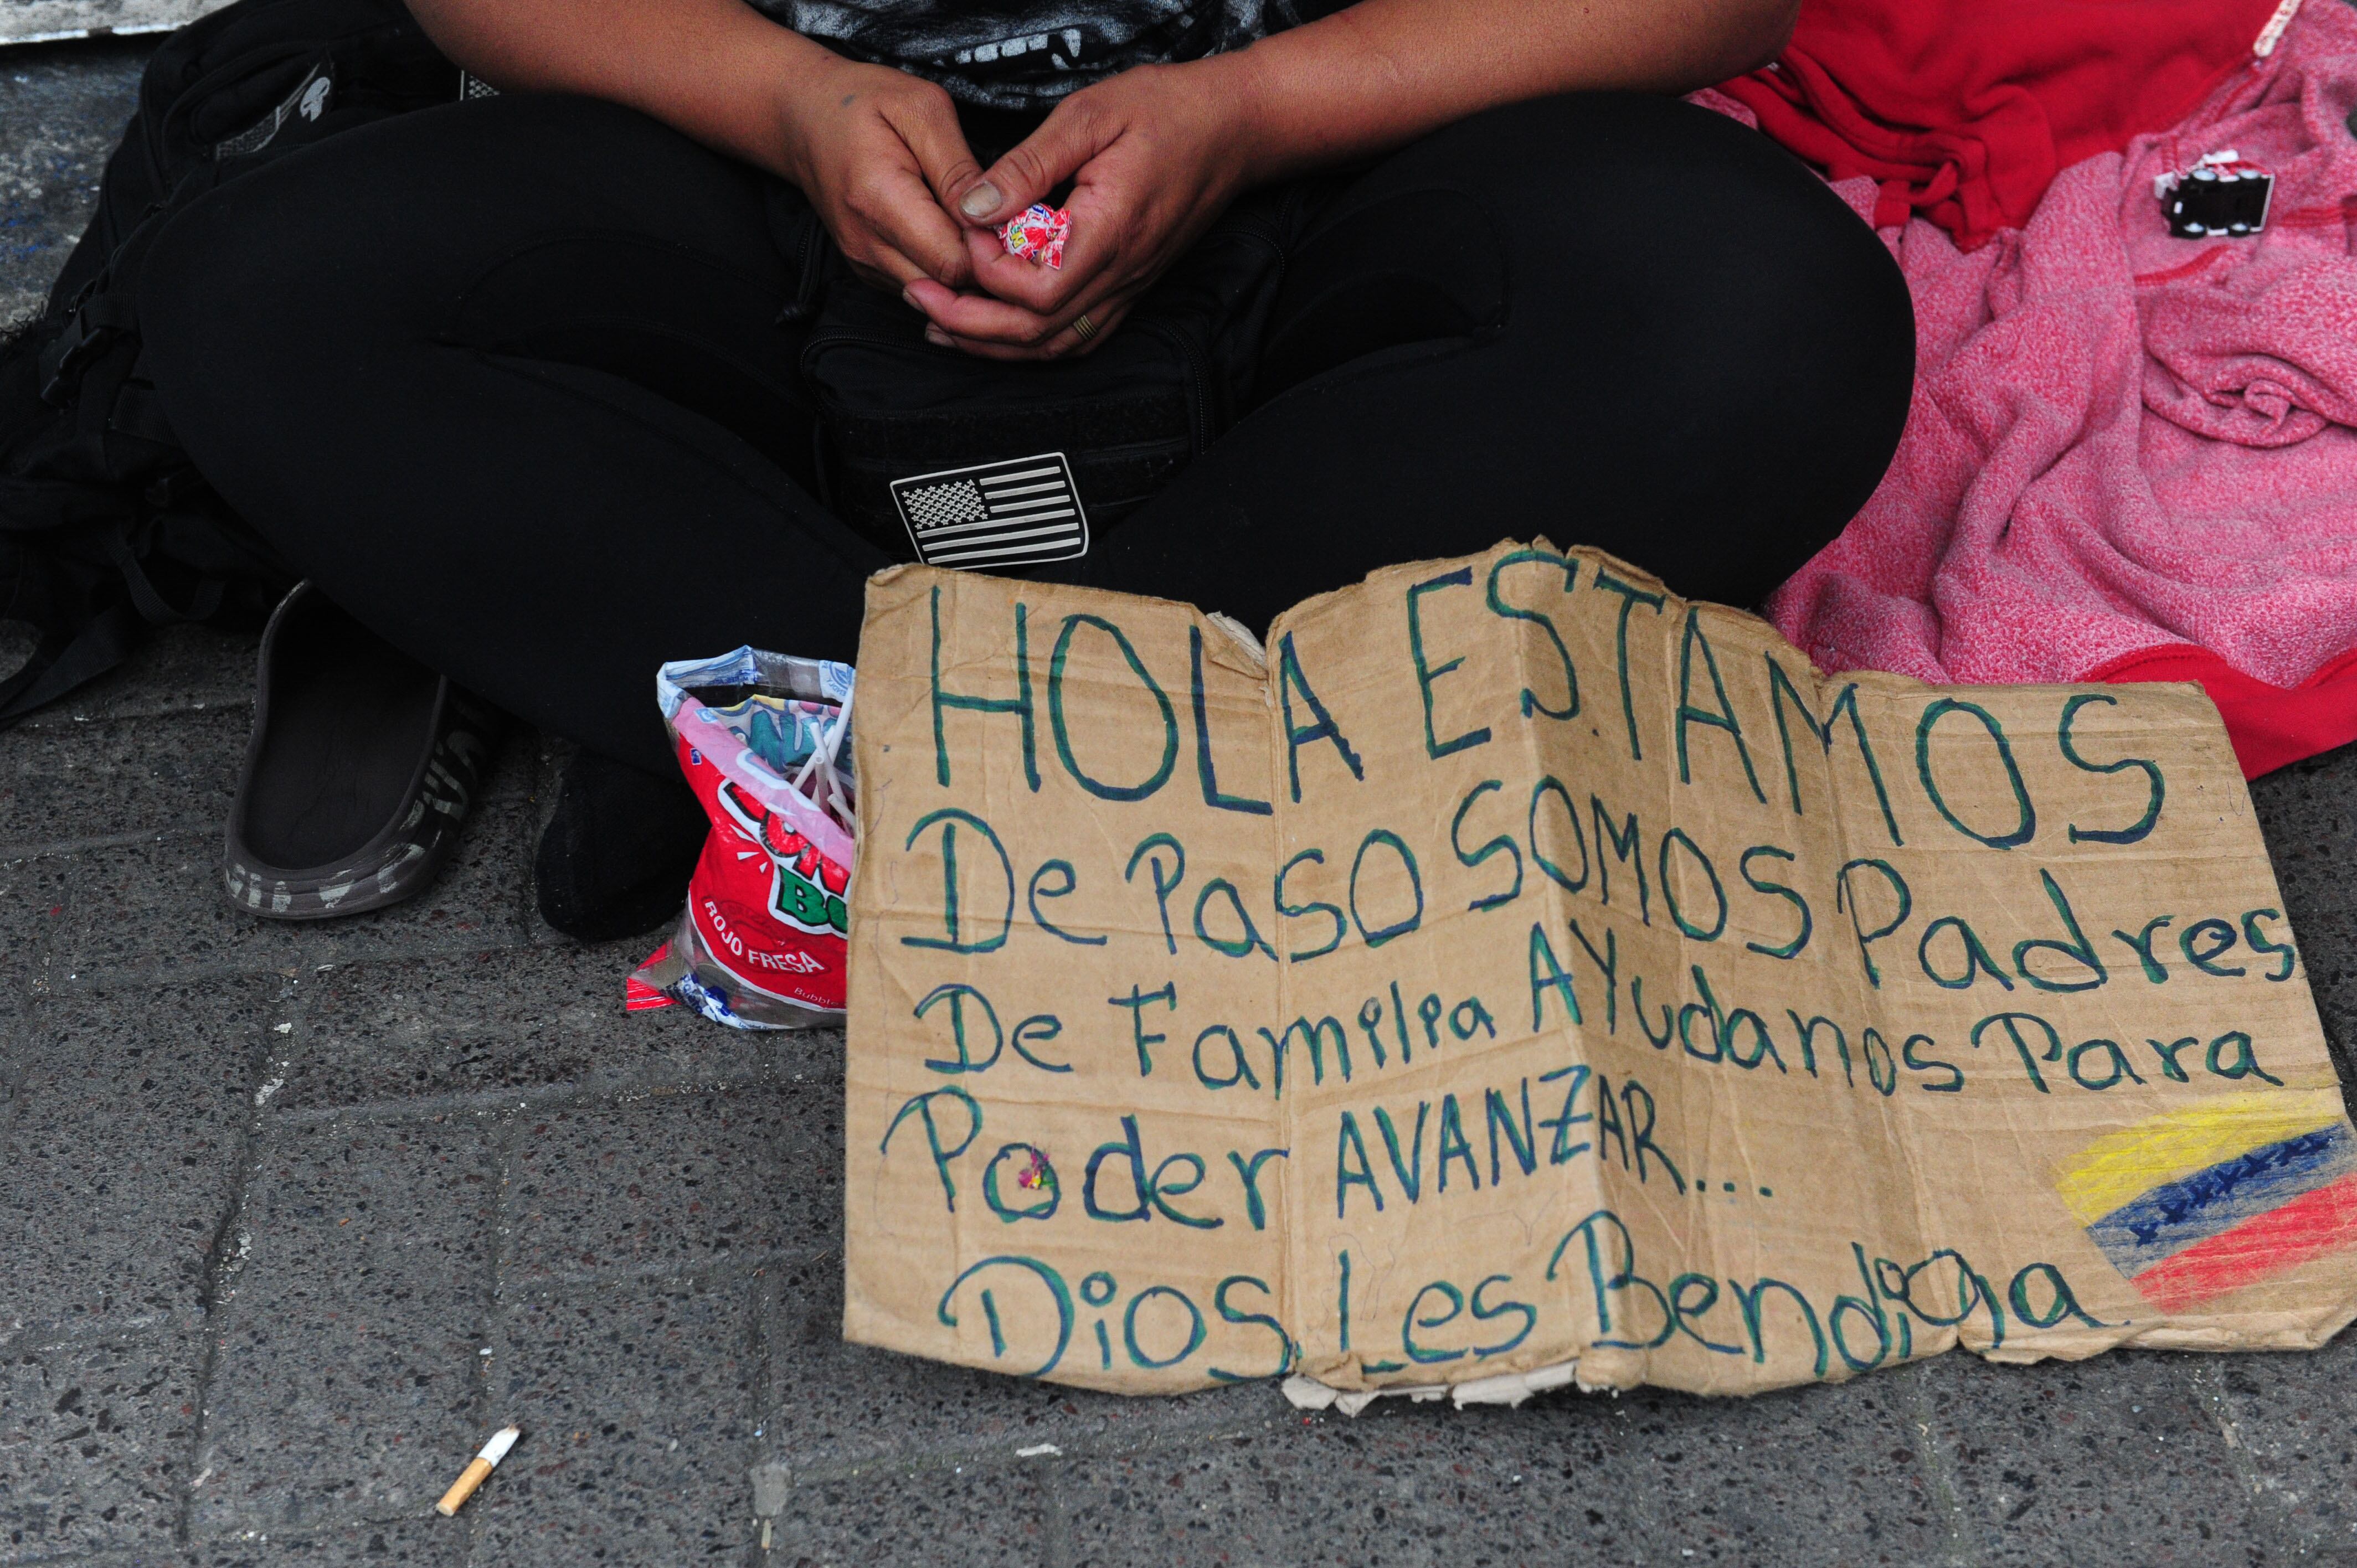 HOLA ESTAMOS
De Paso SOMOS Padres
De Familia AYudanos Para
Poder AVANZAR...
Dios Les Bendiga
ROJO FRESA